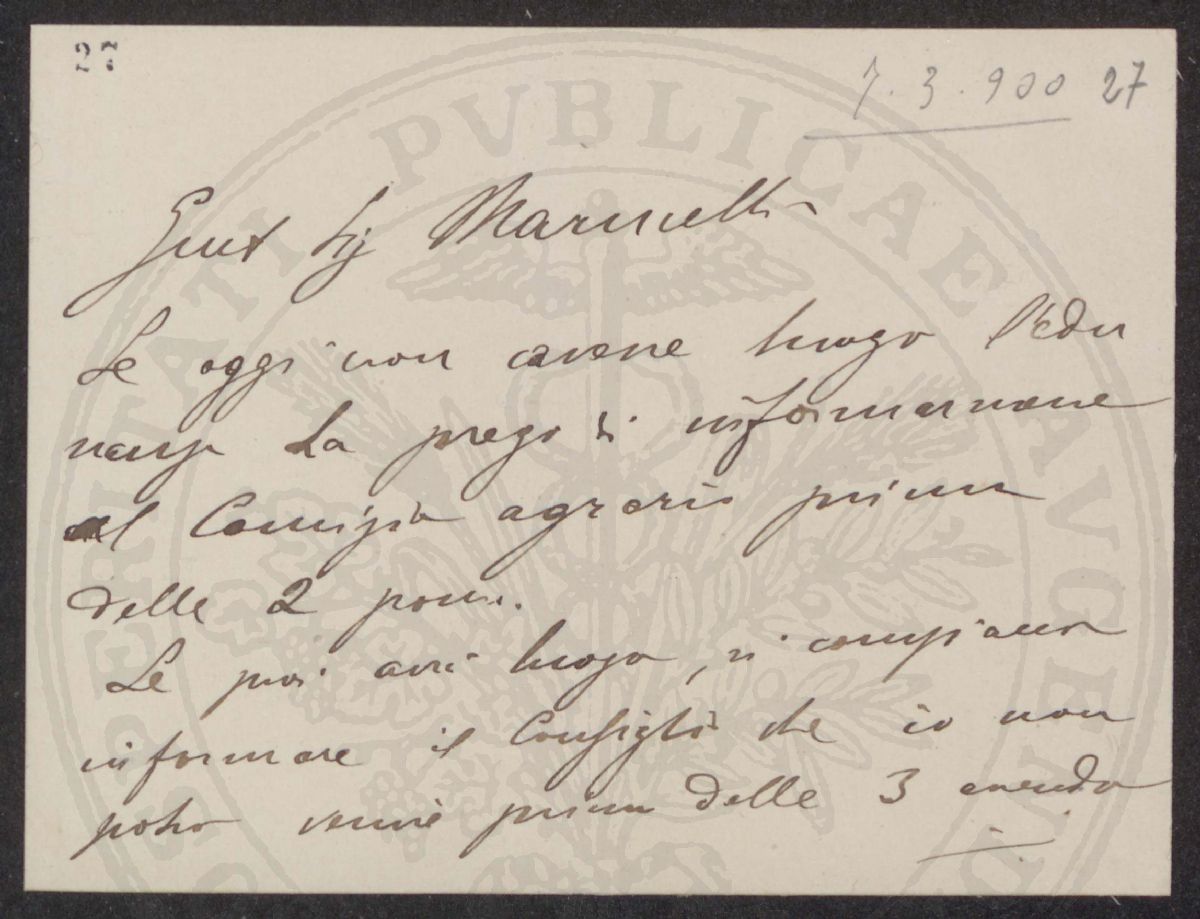 27
7. 3. 900 27
Gent Sig Marinelli
Se oggi non avesse luogo l'Adu
nanza La prego di informarmene
al Comizio agrario prima
delle 2 pom.
Se poi avrà luogo, si compiaccia
informare il Consiglio che io non
potrò venire prima delle 3 avendo
PVBLICAE AVGENDAE